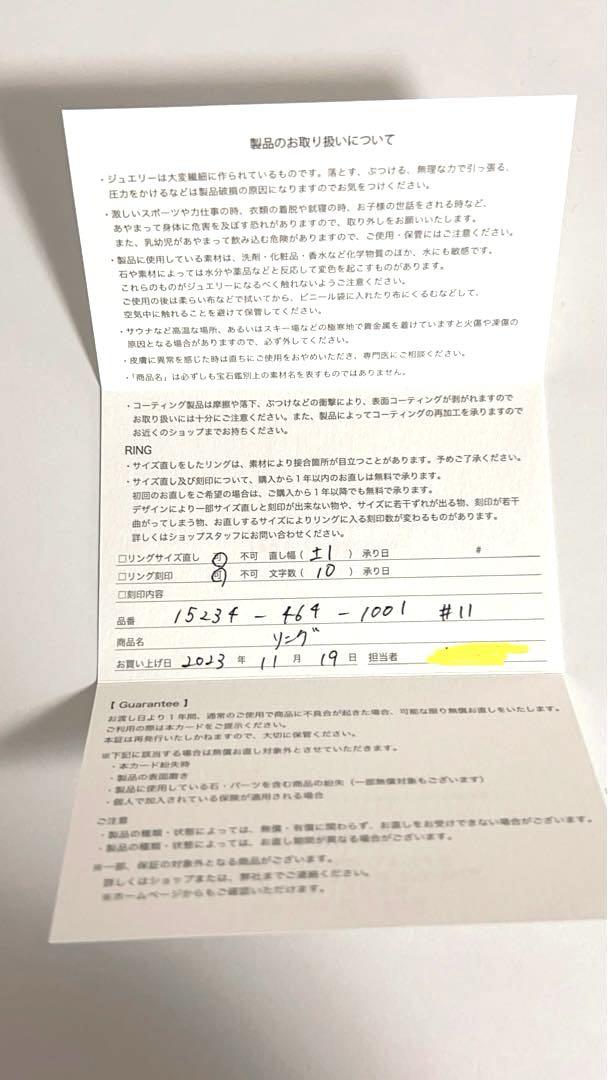 製品のお取り扱いについて
・ジュエリーは大変繊細に作られているものです。落とす、ぶつける、無理な力で引っ張る、
圧力をかけるなどは製品破損の原因になりますのでお気をつけください。
・激しいスポーツや力仕事の時、衣類の着脱や就寝の時、お子様の世話をされる時など、
あやまって身体に危害を及ぼす恐れがありますので、取り外しをお願いいたします。
また、乳幼児があやまって飲み込む危険がありますので、ご使用・保管にはご注意ください。
・製品に使用している素材は、洗剤・化粧品・香水など化学物質のほか、水にも敏感です。
石や素材によっては水分や薬品などと反応して変色を起こすものがあります。
これらのものがジュエリーになるべく触れないようご注意ください。
ご使用の後は柔らい布などで拭いてから、ビニール袋に入れたり布にくるむなどして、
空気中に触れることを避けて保管してください。
・サウナなど高温な場所、あるいはスキー場などの極寒地で貴金属を着けていますと火傷や凍傷の
原因となる場合がありますので、必ず外してください。
・皮膚に異常を感じた時は直ちにご使用をおやめいただき、専門医にご相談ください。
・「商品名」は必ずしも宝石鑑別上の素材名を表すものではありません。
・コーティング製品は摩擦や落下、ぶつけなどの衝撃により、表面コーティングが剥がれますので
お取り扱いには十分にご注意ください。また、製品によってコーティングの再加工を承りますので
お近くのショップまでお持ちください。
RING
・サイズ直しをしたリングは、素材により接合箇所が目立つことがあります。予めご了承ください。
・サイズ直し及び刻印について、購入から1年以内のお直しは無料で承ります。
初回のお直しをご希望の場合は、ご購入から1年以降でも無料で承ります。
デザインにより一部サイズ直しと刻印が出来ない物や、サイズに若干ずれが出る物、刻印が若干
曲がってしまう物、お直しするサイズによりリングに入る刻印数が変わるものがあります。
詳しくはショップスタッフにお問い合わせください。
□リングサイズ直し 可 不可 直し幅( ±1 ) 承り日 #
□リング刻印 可 不可 文字数( 10 ) 承り日
□刻印内容
品番 15234 - 464 - 1001 #11
商品名 リング
お買い上げ日 2023 年 11 月 19 日 担当者
【 Guarantee 】
お渡し日より1年間、通常のご使用で商品に不具合が起きた場合、可能な限り無償お直しをいたします。
ご利用の際は本カードをご提示ください。
本証は再発行いたしかねますので、大切に保管ください。
※下記に該当する場合は無償お直し対象外とさせていただきます。
・本カード紛失時
・製品の表面磨き
・製品に使用している石・パーツを含む商品の紛失（一部無償対象もございます）
・個人で加入されている保険が適用される場合
ご注意
・製品の種類・状態によっては、無償・有償に関わらず、お直しをお受けできない場合がございます。
・製品の種類・状態によっては、お直し期間が異なる場合がございます。
※一部、保証の対象外となる商品がございます。
詳しくはショップまたは、弊社までご連絡ください。
※ホームページからもご確認いただけます。